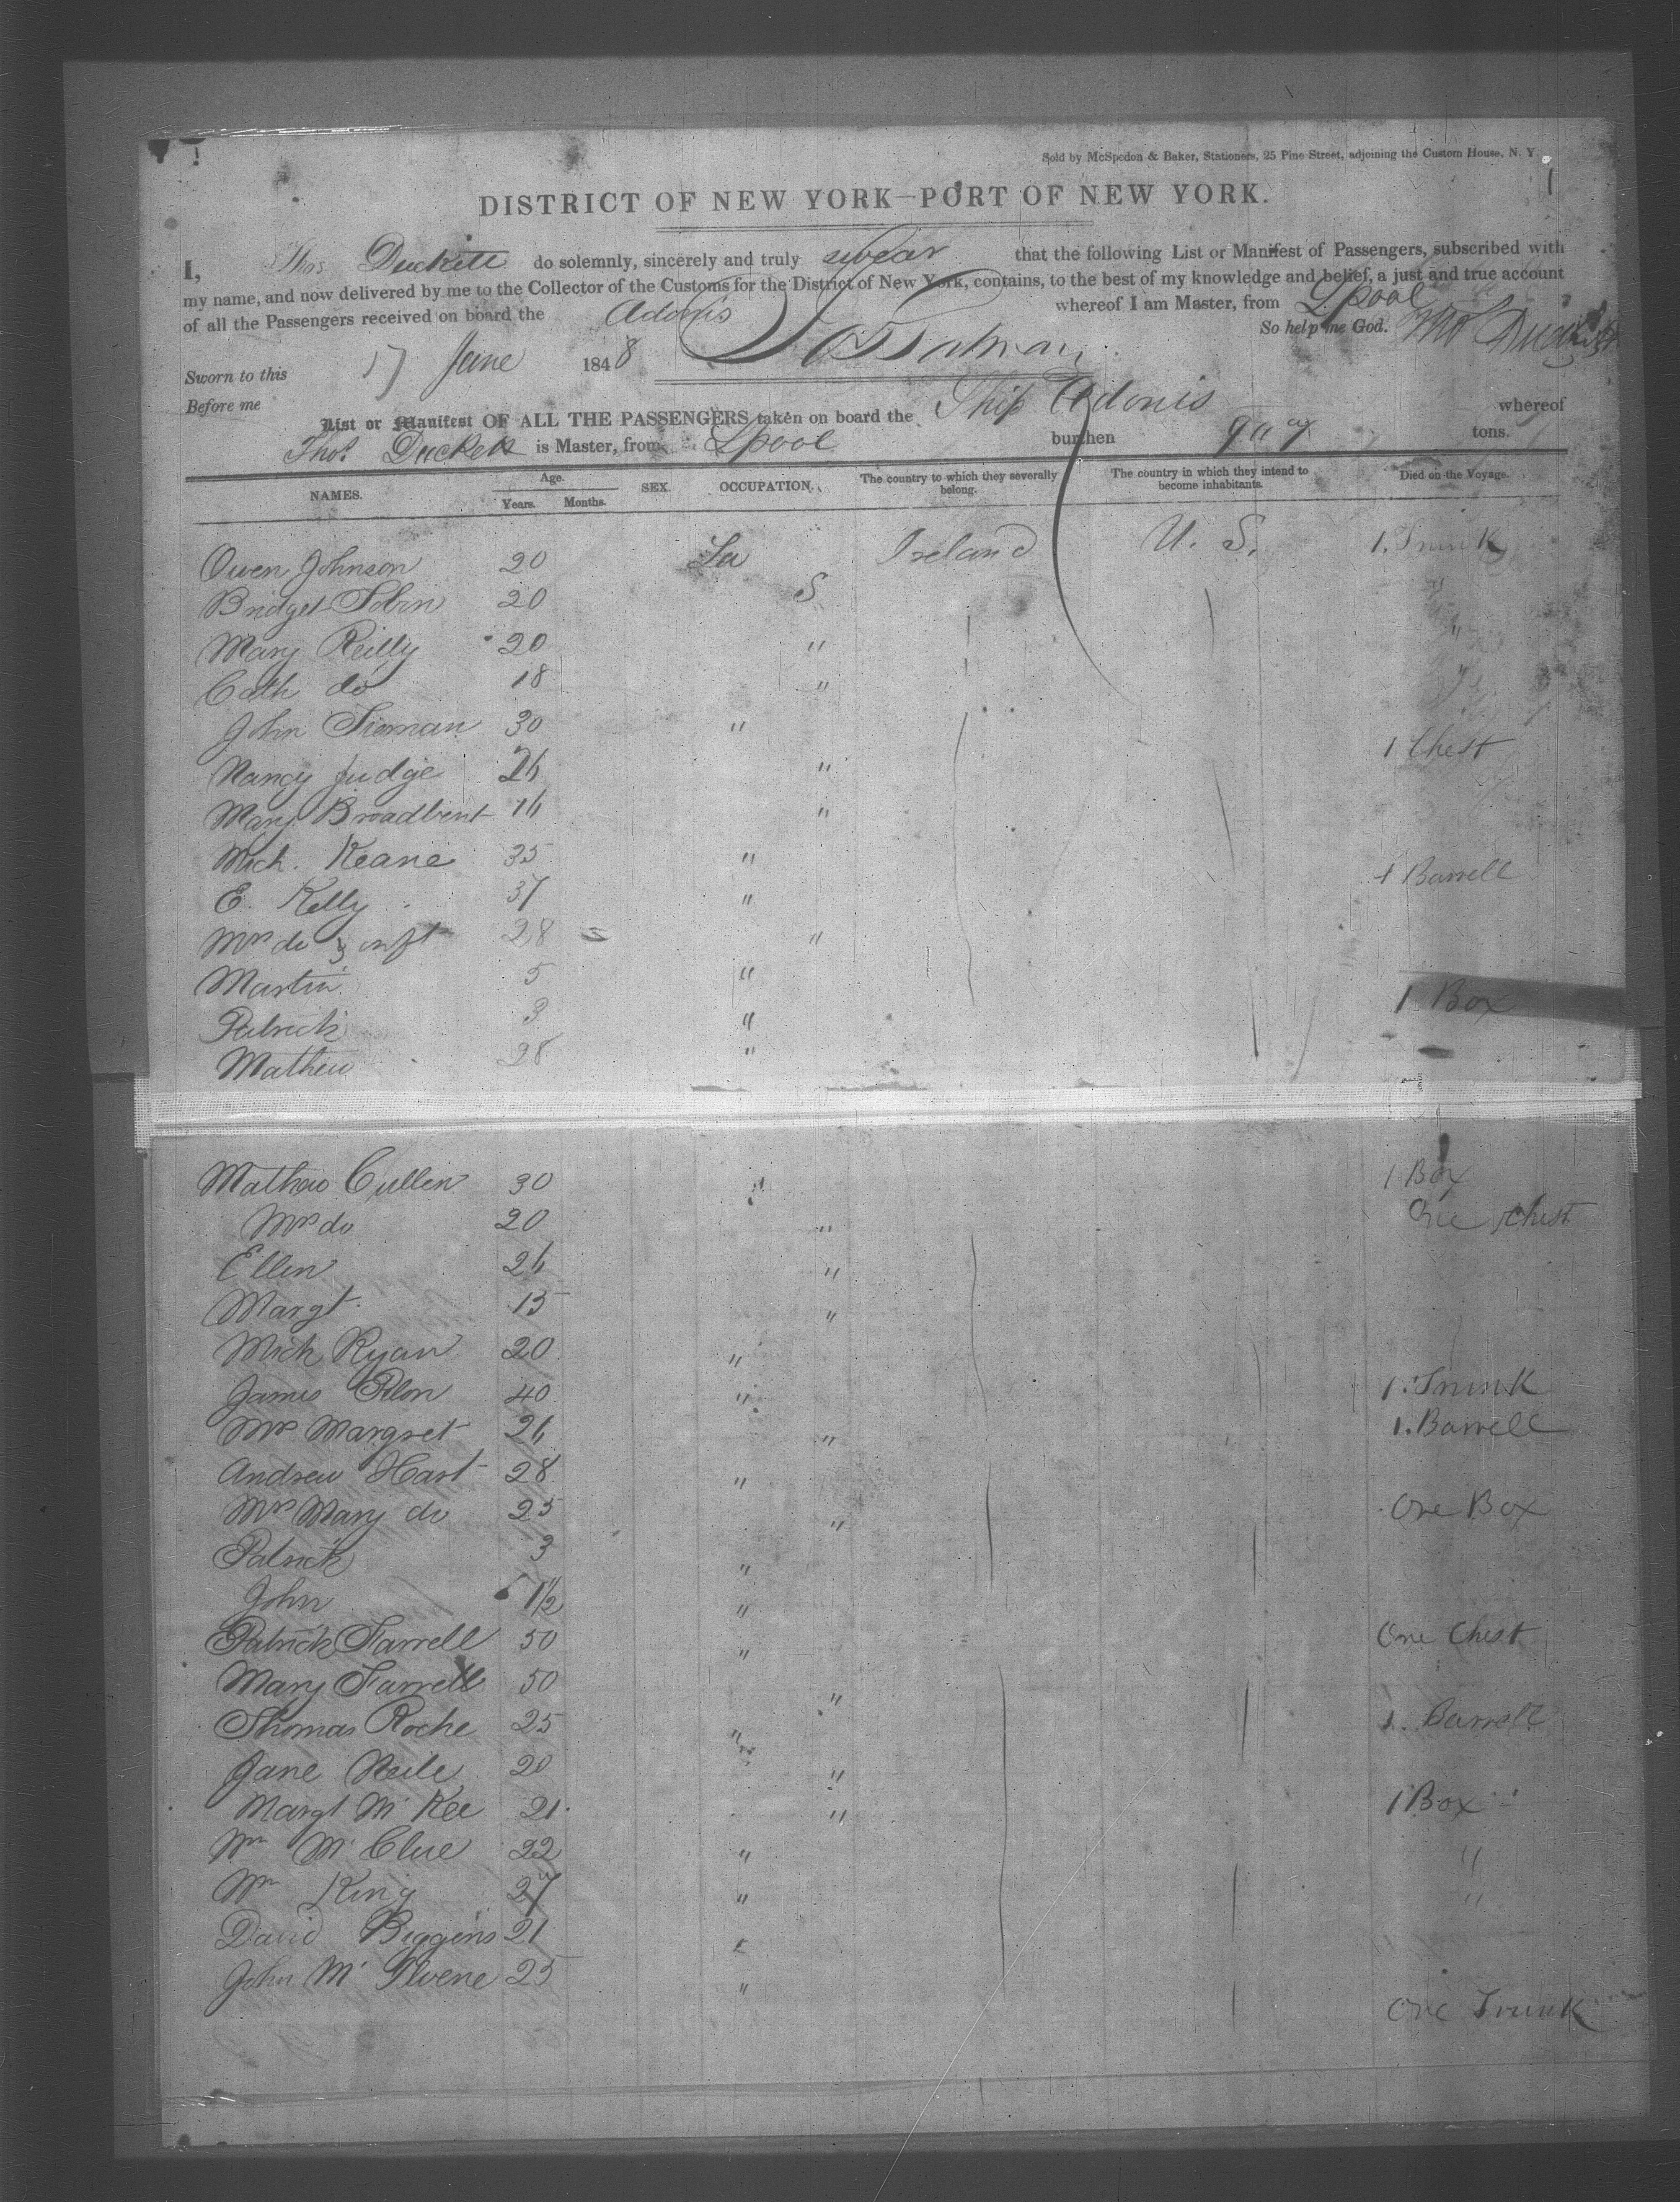 Sold by McSpedon & Baker, Stationers, 25 Pine Street, adjoining the Custom House, N. Y.
1
DISTRICT OF NEW YORK—PORT OF NEW YORK.
I, Thos Duckett do solemnly, sincerely and truly swear that the following List or Manifest of Passengers, subscribed with
my name, and now delivered by me to the Collector of the Customs for the District of New York, contains, to the best of my knowledge and belief, a just and true account
of all the Passengers received on board the Adonis whereof I am Master, from Lpool
So help me God. Thos Duckett
Sworn to this 17 June 1848
Before me
List or Manifest OF ALL THE PASSENGERS taken on board the Ship Adonis whereof
Thos. Duckett is Master, from Lpool burthen tons.
NAMES. Age. Years. Months. SEX. OCCUPATION. The country to which they severally belong. The country in which they intend to become inhabitants. Died on the Voyage.
Owen Johnson 20 La Ireland U. S. 1. Trunk
Bridget Tobin 20 S "
Mary Reilly 20 " "
Cath do 18 " "
John Tiernan 30 "
Nancy Judge 24 " 1 Chest
Mary Broadbent 14 "
Mich. Keane 35 "
E. Kelly 37 " 1 Barrell
Mrs do & inft 28 "
Martin 5 "
Patrick 3 " 1 Box
Mathew 28 "
Mathew Cullen 30 " 1 Box
Mrs do 20 " One Chest
Ellen 24 "
Margt. 15 "
Mich Ryan 20 "
James 40 " 1. Trunk
Mrs Margret 24 " 1. Barrell
Andrew Hart 28 "
Mrs Mary do 25 " One Box
Patrick 3 "
John 1½ "
Patrick Farrell 50 " One Chest
Mary Farrell 50 "
Thomas Roche 25 " 1. Barrell
Jane Neile 20 "
Margt Mc Kee 21 " 1 Box
Wm Mc Clue 22 " "
Wm King 27 " "
David Biggins 21 "
John Mc 25 "
One Trunk